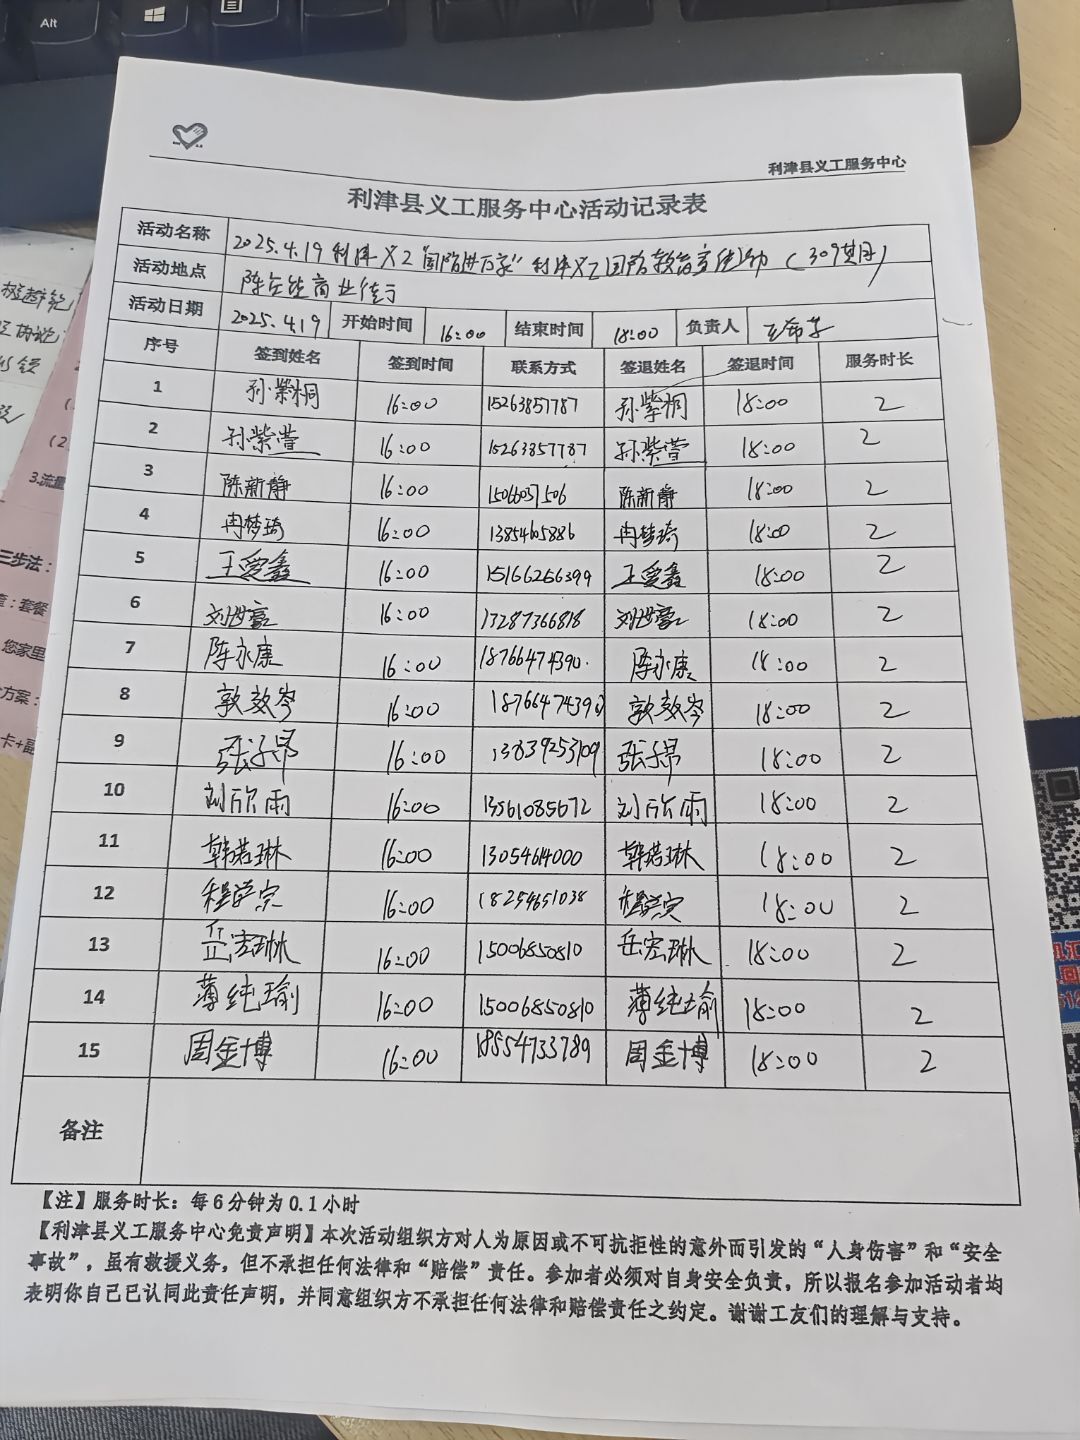 Alt
利津县义工服务中心
利津县义工服务中心活动记录表
活动名称 2025.4.19 利津义工"国防进万家"利津义工国防教育宣传活动 (309期)
活动地点 陈庄镇商业街
活动日期 2025.4.19 开始时间 16:00 结束时间 18:00 负责人
序号 签到姓名 签到时间 联系方式 签退姓名 签退时间 服务时长
1 孙紫桐 16:00 15263857787 孙紫桐 18:00 2
2 孙紫萱 16:00 15263857787 孙紫萱 18:00 2
3 陈新静 16:00 陈新静 18:00 2
4 冉梦琦 16:00 冉梦琦 18:00 2
5 王爱鑫 16:00 15166256399 王爱鑫 18:00 2
6 刘世豪 16:00 13287366818 刘世豪 18:00 2
7 陈永康 16:00 18766474390 陈永康 18:00 2
8 敦效岑 16:00 18766474390 敦效岑 18:00 2
9 张子昂 16:00 13839253109 张子昂 18:00 2
10 刘欣雨 16:00 13561085672 刘欣雨 18:00 2
11 韩若琳 16:00 1305464000 韩若琳 18:00 2
12 16:00 18254651038 18:00 2
13 岳宏琳 16:00 15006850810 岳宏琳 18:00 2
14 薄纯瑜 16:00 15006850810 薄纯瑜 18:00 2
15 周金博 16:00 18554733789 周金博 18:00 2
备注
【注】服务时长：每6分钟为0.1小时
【利津县义工服务中心免责声明】本次活动组织方对人为原因或不可抗拒性的意外而引发的“人身伤害”和“安全
事故”，虽有救援义务，但不承担任何法律和“赔偿”责任。参加者必须对自身安全负责，所以报名参加活动者均
表明你自己已认同此责任声明，并同意组织方不承担任何法律和赔偿责任之约定。谢谢工友们的理解与支持。
3.流量
三步法：
套餐
您家里
方案：